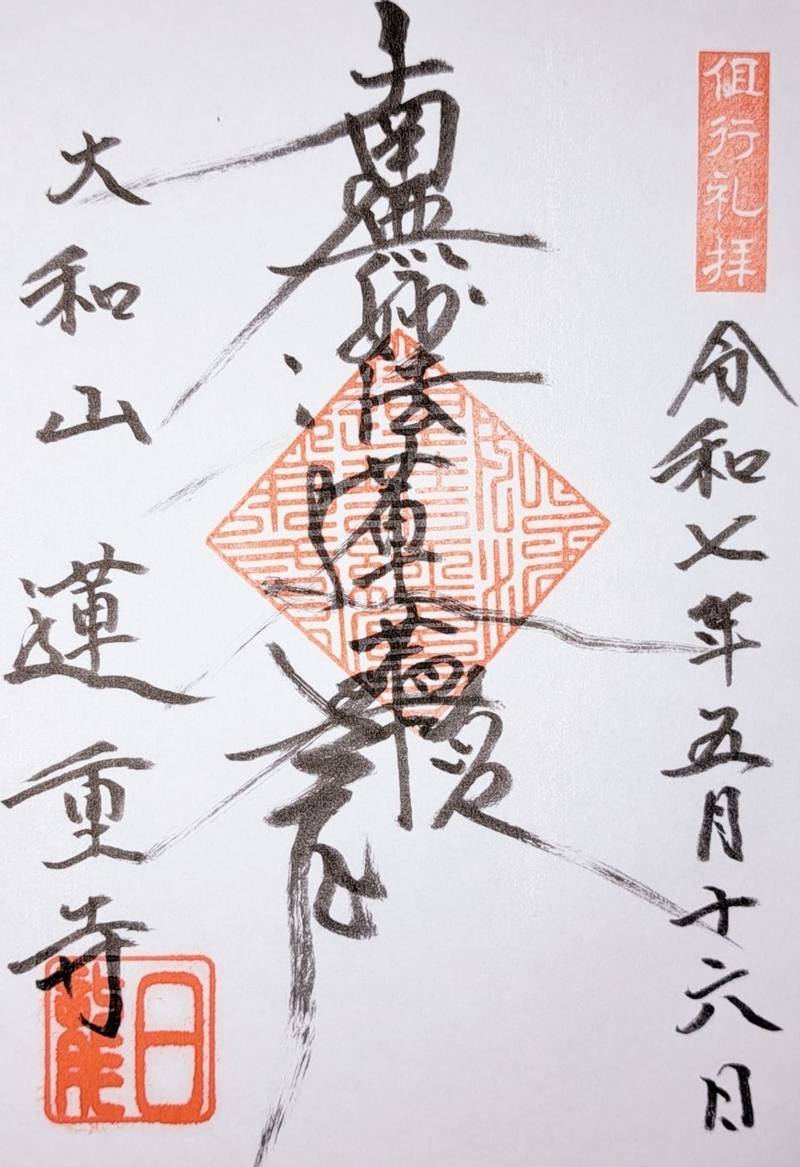 但行礼拝
令和七年五月十六日
南無妙法蓮華経
大和山 蓮重寺
日龍